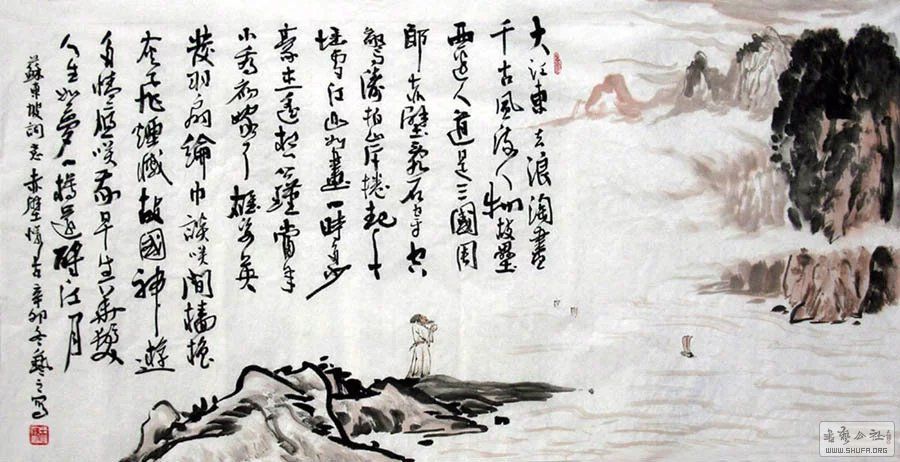 大江東去浪淘盡
千古風流人物故壘
西邊人道是三國周
郎赤壁亂石穿空
驚濤拍岸捲起千
堆雪江山如畫一時多少
豪杰遙想公瑾當年
小喬初嫁了雄姿英
發羽扇綸巾談笑間檣櫓
灰飛煙滅故國神遊
多情應笑我早生華髮
人生如夢一樽還酹江月
蘇東坡詞志赤壁懷古辛卯冬藝之寫
書藝公社
WWW.SHUFA.ORG